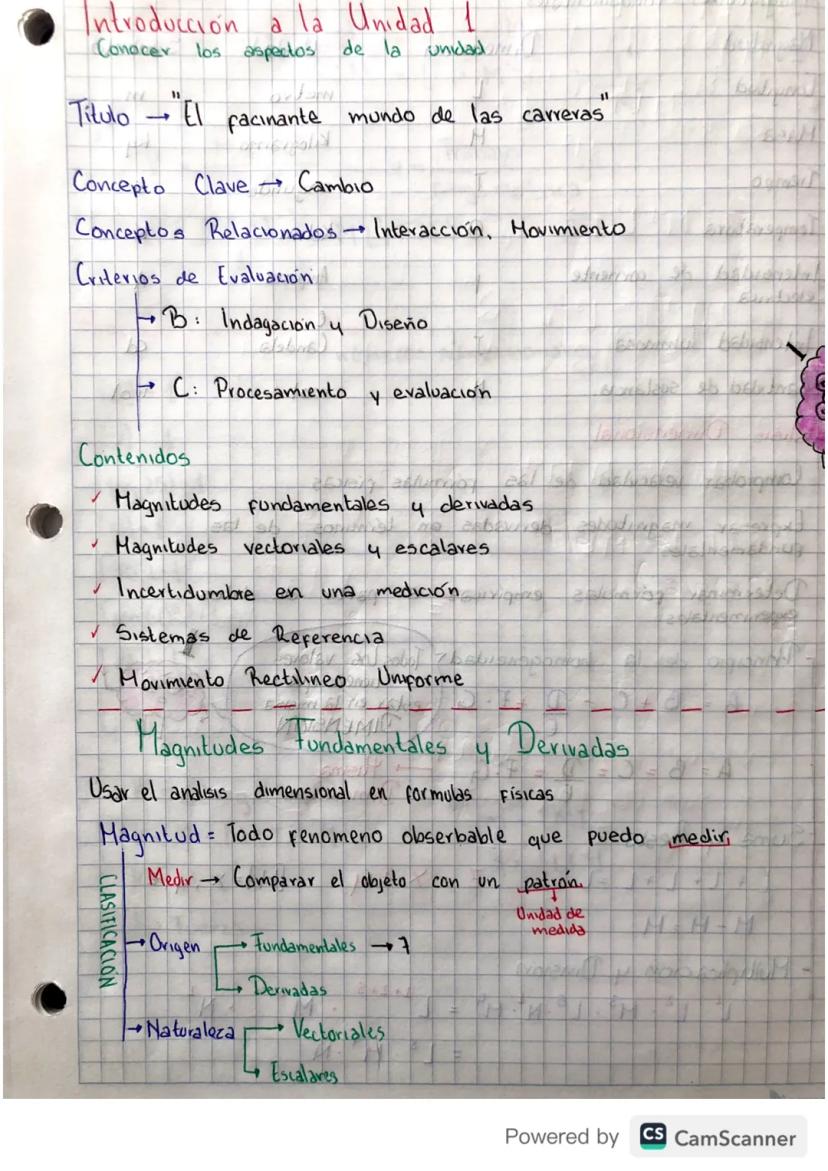 Introducción a la Unidad 1
Conocer los aspectos de la unidad
Título → "El facinante mundo de las carreras"
Concepto Clave → Cambio
Conceptos Relacionados → Interacción, Movimiento
Criterios de Evaluación
→ B: Indagación y Diseño
→ C: Procesamiento y evaluación
Contenidos
✓ Magnitudes fundamentales y derivadas
✓ Magnitudes vectoriales y escalares
✓ Incertidumbre en una medición
✓ Sistemas de Referencia
✓ Movimiento Rectilineo Uniforme
Magnitudes Fundamentales y Derivadas
Usar el analisis dimensional en formulas físicas
Magnitud = Todo fenomeno obserbable que puedo medir
Medir → Comparar el objeto con un patrón
Unidad de
medida
CLASIFICACIÓN
→ Origen → Fundamentales → 7
→ Derivadas
→ Naturaleza → Vectoriales
→ Escalares
Powered by CS CamScanner